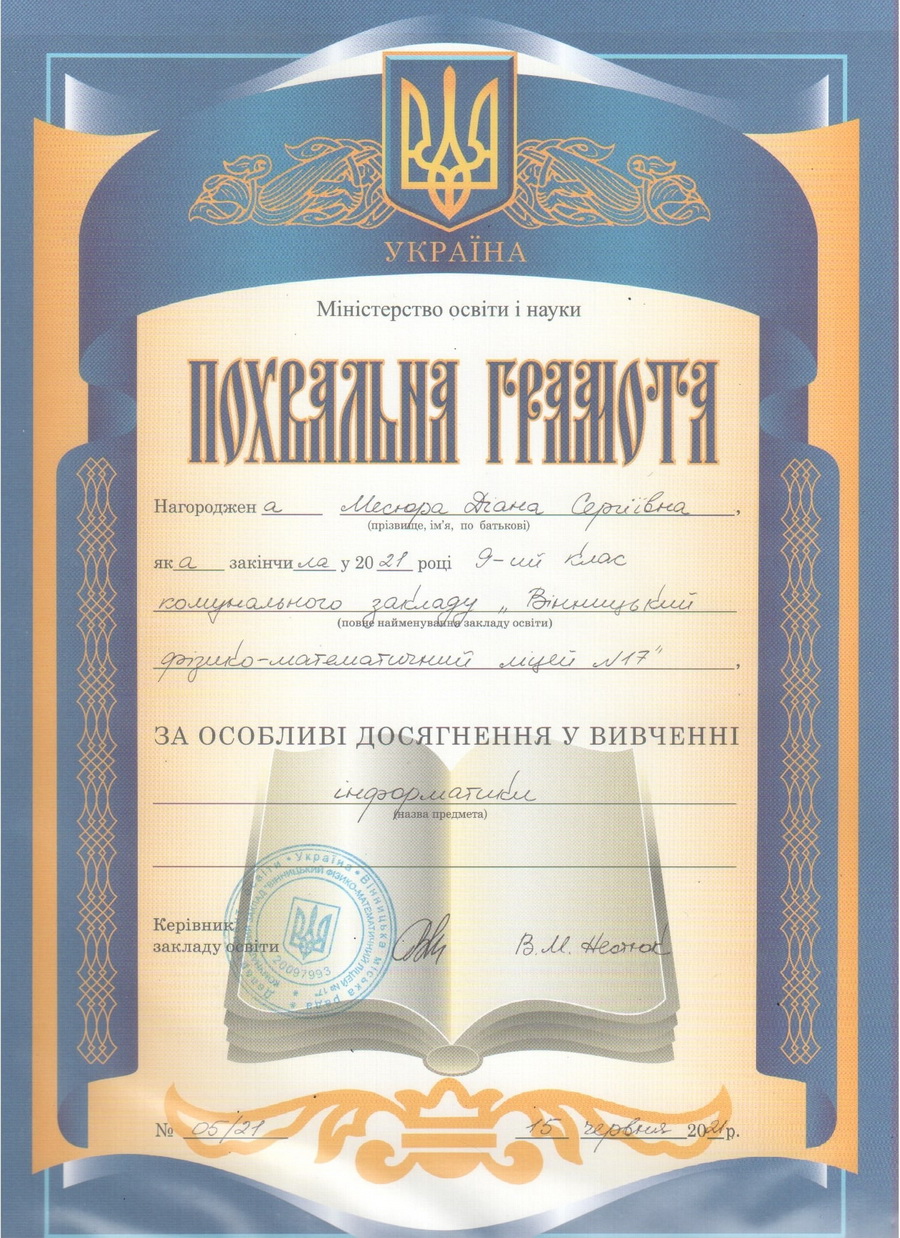 УКРАЇНА
Міністерство освіти і науки
ПОХВАЛЬНА ГРАМОТА
Нагороджен а Месюра Діана Сергіївна,
(прізвище, ім'я, по батькові)
як а закінчи ла у 20 21 році 9-ий клас
комунального закладу „Вінницький
(повне найменування закладу освіти)
фізико-математичний ліцей №17",
ЗА ОСОБЛИВІ ДОСЯГНЕННЯ У ВИВЧЕННІ
інформатики
(назва предмета)
Керівник
закладу освіти В.М.
Україна * Вінницька міська рада *
"ВІННИЦЬКИЙ ФІЗИКО-МАТЕМАТИЧНИЙ ЛІЦЕЙ № 17"
20097993
№ 05/21 15 червня 2021р.